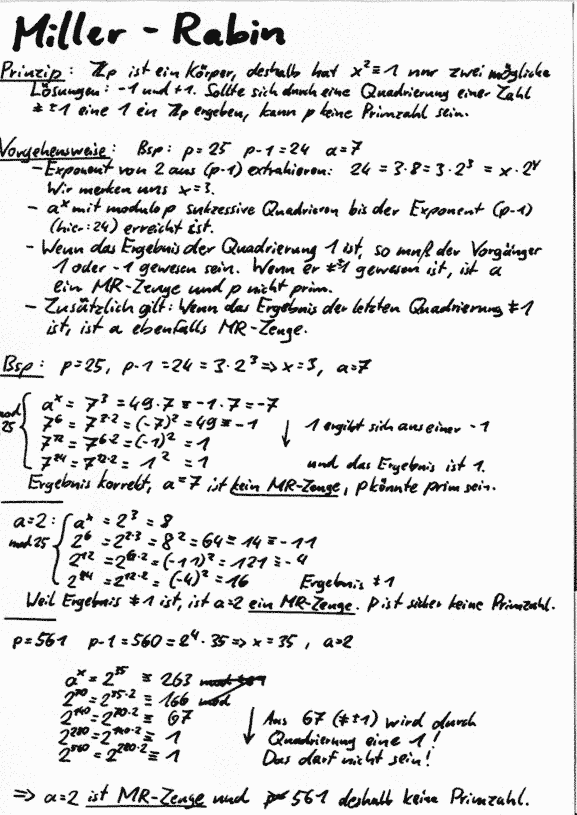 Miller - Rabin
Prinzip: ℤp ist ein Körper, deshalb hat x² ≡ 1 nur zwei mögliche
Lösungen: -1 und +1. Sollte sich durch eine Quadrierung einer Zahl
≠ ±1 eine 1 in ℤp ergeben, kann p keine Primzahl sein.
Vorgehensweise: Bsp: p=25 p-1=24 a=7
- Exponent von 2 aus (p-1) extrahieren: 24 = 3·8 = 3·2³ = x·2^r
Wir merken uns x=3.
- a^x mit modulo p sukzessive Quadrieren bis der Exponent (p-1)
(hier: 24) erreicht ist.
- Wenn das Ergebnis der Quadrierung 1 ist, so muß der Vorgänger
1 oder -1 gewesen sein. Wenn er ≠±1 gewesen ist, ist a
ein MR-Zeuge und p nicht prim.
- Zusätzlich gilt: Wenn das Ergebnis der letzten Quadrierung ≠1
ist, ist a ebenfalls MR-Zeuge.
Bsp: p=25, p-1 = 24 = 3·2³ => x=3, a=7
mod 25 { a^x = 7³ = 49·7 ≡ -1·7 = -7
7^6 = 7^(3·2) = (-7)² = 49 ≡ -1 ↓ 1 ergibt sich aus einer -1
7^12 = 7^(6·2) = (-1)² = 1
7^24 = 7^(12·2) = 1² = 1 und das Ergebnis ist 1.
Ergebnis korrekt, a=7 ist kein MR-Zeuge, p könnte prim sein.
a=2: { a^x = 2³ = 8
mod 25 2^6 = 2^(2·3) = 8² = 64 ≡ 14 ≡ -11
2^12 = 2^(6·2) = (-11)² = 121 ≡ -4
2^24 = 2^(12·2) = (-4)² = 16 Ergebnis ≠1
Weil Ergebnis ≠1 ist, ist a=2 ein MR-Zeuge. p ist sicher keine Primzahl.
p=561 p-1=560=2⁴·35 => x=35, a=2
a^x = 2^35 ≡ 263
2^70 = 2^(35·2) ≡ 166
2^140 = 2^(70·2) ≡ 67 ↓ Aus 67 (≠±1) wird durch
2^280 = 2^(140·2) ≡ 1 Quadrierung eine 1!
2^560 = 2^(280·2) ≡ 1 Das darf nicht sein!
=> a=2 ist MR-Zeuge und 561 deshalb keine Primzahl.